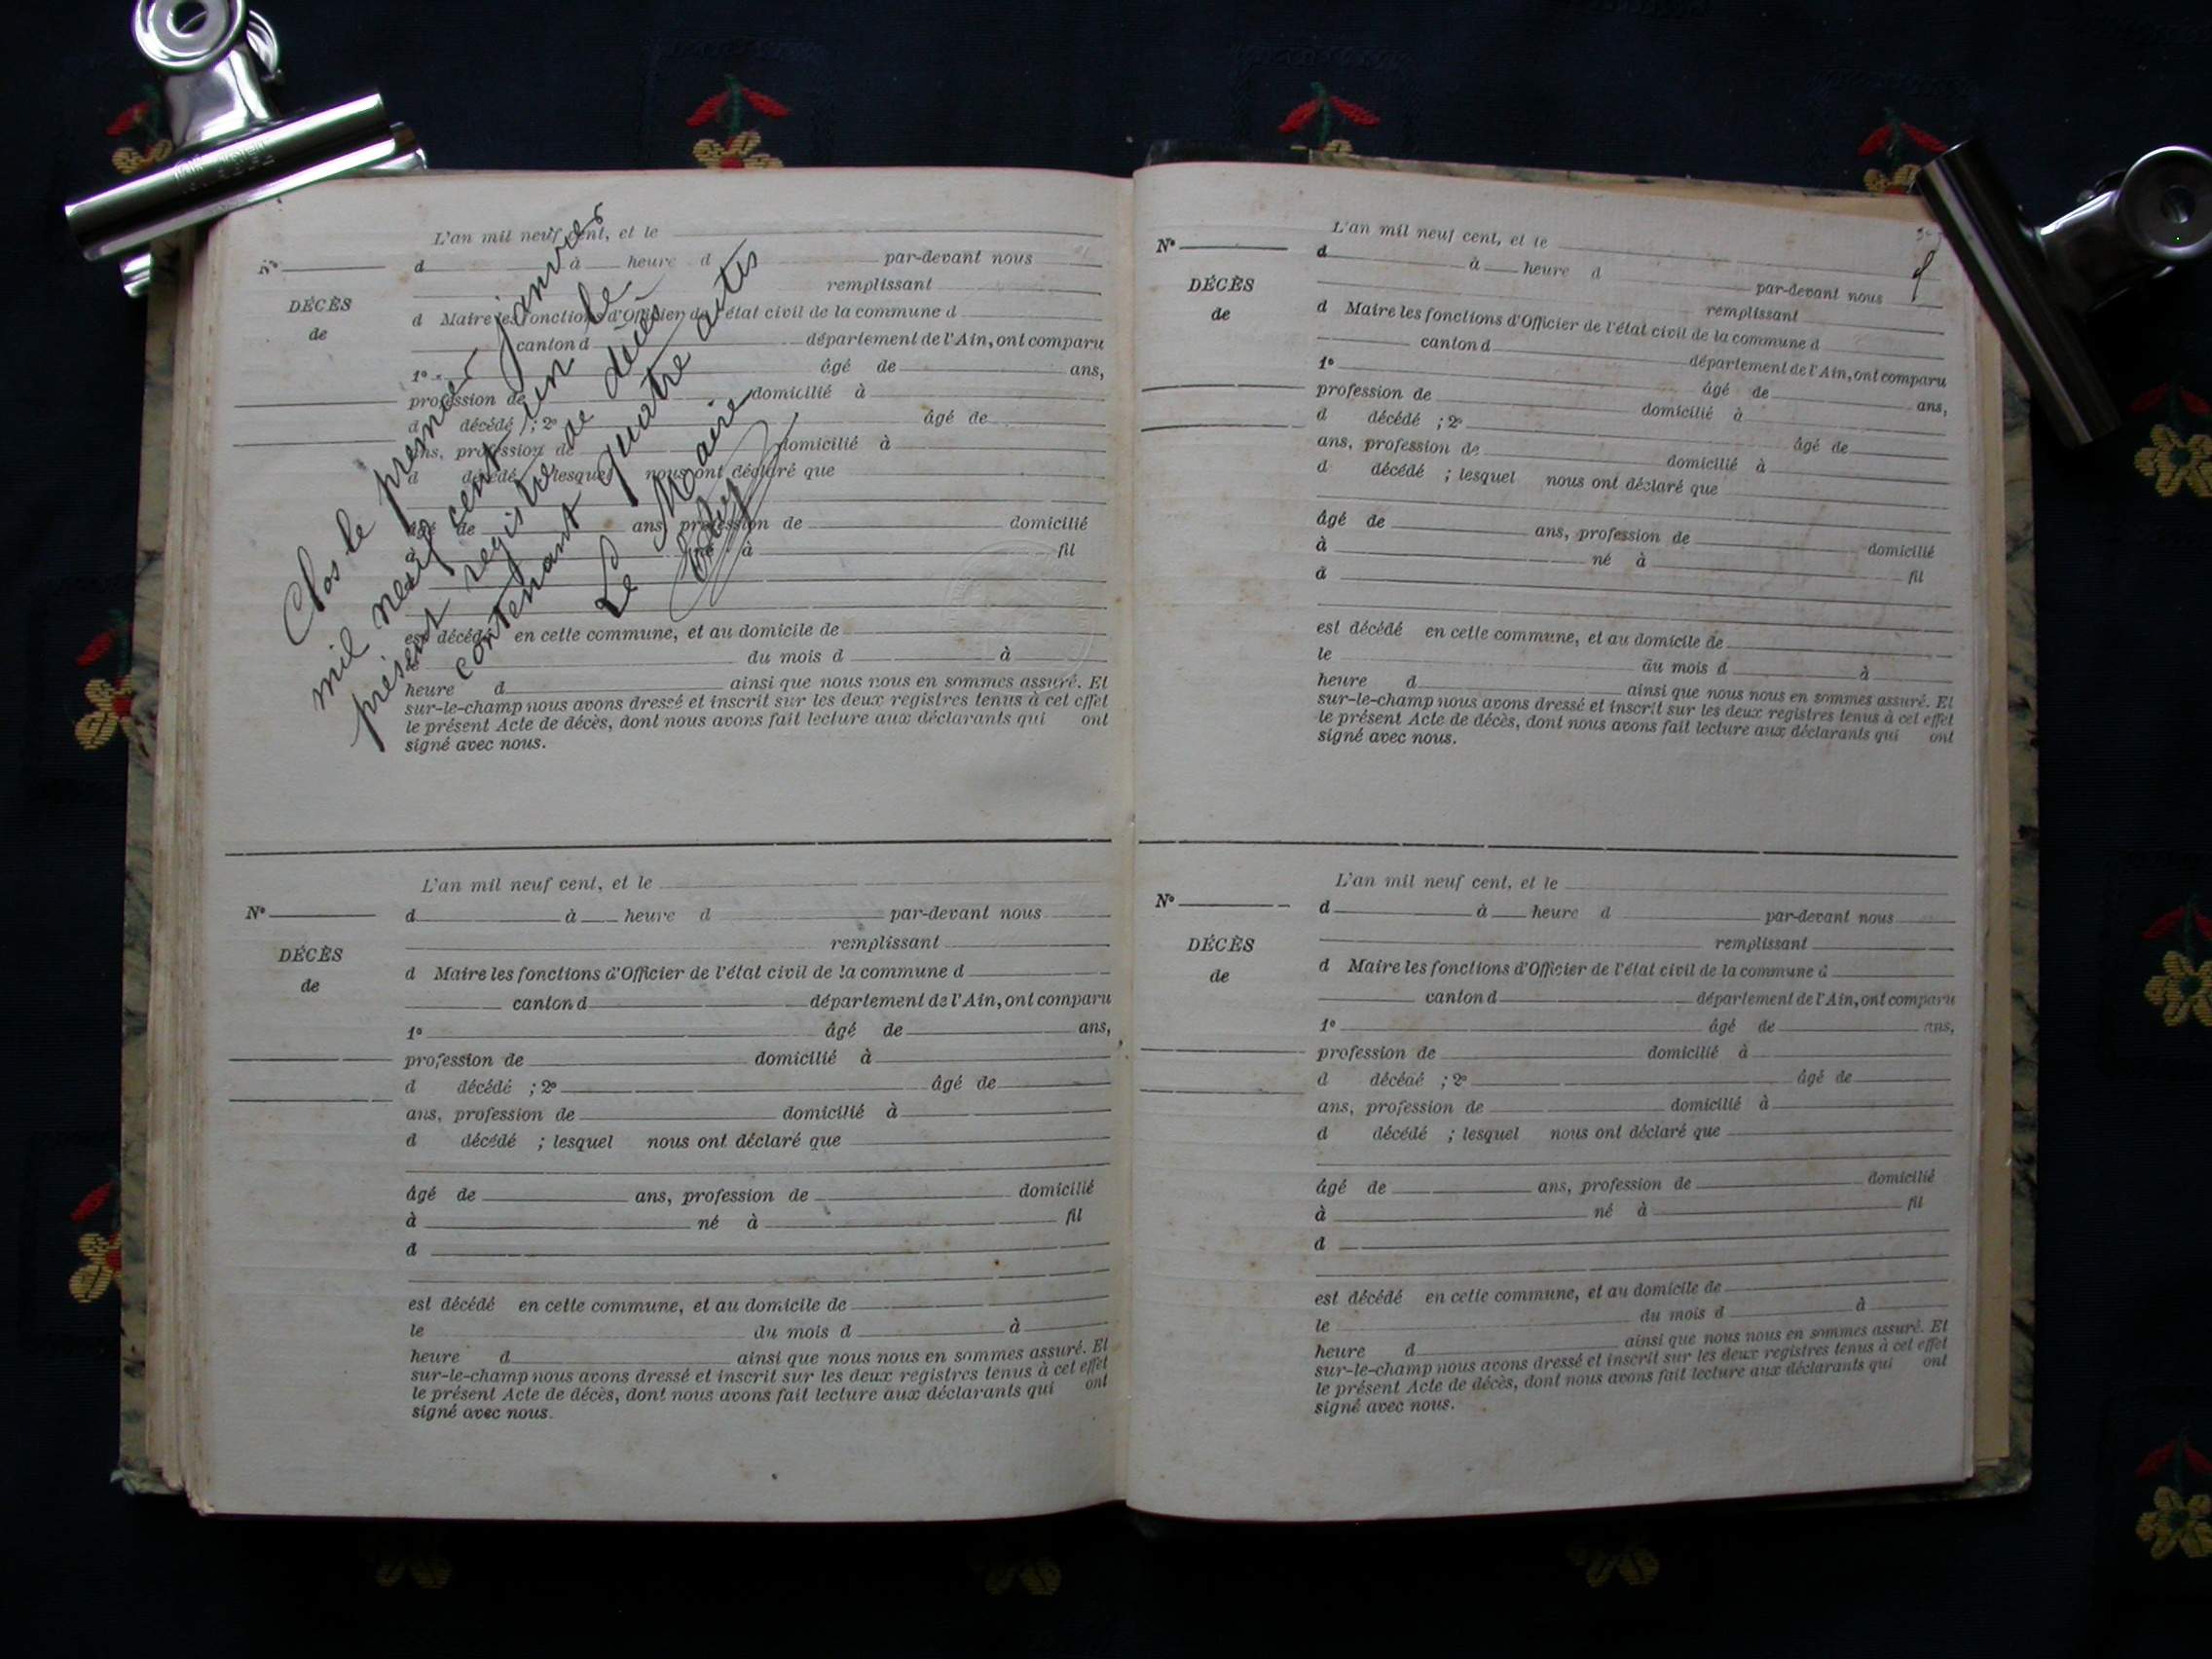 Clos le premier janvier
mil neuf cent un le
présent registre de décès
contenant quatre actes
Le Maire
L'an mil neuf cent, et le
N°
d à heure d par-devant nous
DÉCÈS
remplissant
de
d Maire les fonctions d'Officier de l'état civil de la commune d
canton d département de l'Ain, ont comparu
1° âgé de ans,
profession de domicilié à
d décédé ; 2° âgé de
ans, profession de domicilié à
d décédé ; lesquel nous ont déclaré que
âgé de ans, profession de domicilié
à né à fil
d
est décédé en cette commune, et au domicile de
le du mois d à
heure d ainsi que nous nous en sommes assuré. Et
sur-le-champ nous avons dressé et inscrit sur les deux registres tenus à cet effet
le présent Acte de décès, dont nous avons fait lecture aux déclarants qui ont
signé avec nous.
L'an mil neuf cent, et le
N°
d à heure d par-devant nous
remplissant
DÉCÈS
de
d Maire les fonctions d'Officier de l'état civil de la commune d
canton d département de l'Ain, ont comparu
1° âgé de ans,
profession de domicilié à
d décédé ; 2° âgé de
ans, profession de domicilié à
d décédé ; lesquel nous ont déclaré que
âgé de ans, profession de domicilié
à né à fil
d
est décédé en cette commune, et au domicile de
le du mois d à
heure d ainsi que nous nous en sommes assuré. Et
sur-le-champ nous avons dressé et inscrit sur les deux registres tenus à cet effet
le présent Acte de décès, dont nous avons fait lecture aux déclarants qui ont
signé avec nous.
L'an mil neuf cent, et le
N°
d à heure d par-devant nous
DÉCÈS
remplissant
de
d Maire les fonctions d'Officier de l'état civil de la commune d
canton d département de l'Ain, ont comparu
1° âgé de ans,
profession de domicilié à
d décédé ; 2° âgé de
ans, profession de domicilié à
d décédé ; lesquel nous ont déclaré que
âgé de ans, profession de domicilié
à né à fil
d
est décédé en cette commune, et au domicile de
le du mois d à
heure d ainsi que nous nous en sommes assuré. Et
sur-le-champ nous avons dressé et inscrit sur les deux registres tenus à cet effet
le présent Acte de décès, dont nous avons fait lecture aux déclarants qui ont
signé avec nous.
L'an mil neuf cent, et le
N°
d à heure d par-devant nous
remplissant
DÉCÈS
de
d Maire les fonctions d'Officier de l'état civil de la commune d
canton d département de l'Ain, ont comparu
1° âgé de ans,
profession de domicilié à
d décédé ; 2° âgé de
ans, profession de domicilié à
d décédé ; lesquel nous ont déclaré que
âgé de ans, profession de domicilié
à né à fil
d
est décédé en cette commune, et au domicile de
le du mois d à
heure d ainsi que nous nous en sommes assuré. Et
sur-le-champ nous avons dressé et inscrit sur les deux registres tenus à cet effet
le présent Acte de décès, dont nous avons fait lecture aux déclarants qui ont
signé avec nous.